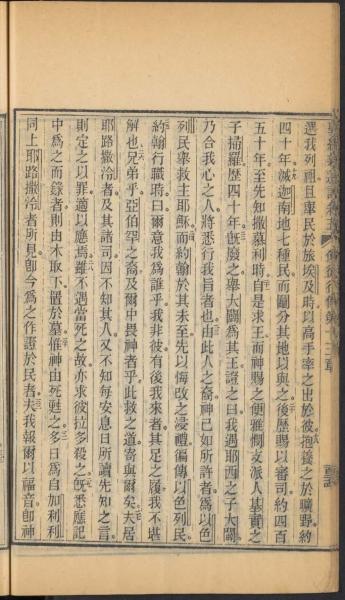 選我列祖且舉民於旅埃及時以高手率之出於彼抱養之於曠野約
四十年滅迦南地七種民而鬮分其地以與之後歷賜以審司約四百
五十年至先知撒慕利時自是求王而神賜之便雅憫支派人基賽之
子掃羅歷四十年旣廢之舉大闢爲其王證之曰我遇耶西之子大闢
乃合我心之人將悉行我旨者也由此人之裔神已如所許者爲以色
列民舉救主耶穌而約翰於其未至先以悔改之浸禮徧傳以色列民
約翰行職時曰爾意我爲誰乎我非彼有後我來者其足之履我不堪
解也兄弟乎亞伯罕之裔及爾中畏神者乎此救之道寄與爾矣夫居
耶路撒冷者及其諸司因不知其人又不知每安息日所讀先知之言
則定之以罪適以應焉雖不遇當死之故亦求彼拉多殺之旣悉應記
中爲之而錄者則由木取下置於墓惟神由死甦之多日爲自加利利
同上耶路撒冷者所見卽今爲之作證於民者夫我報爾以福音卽神